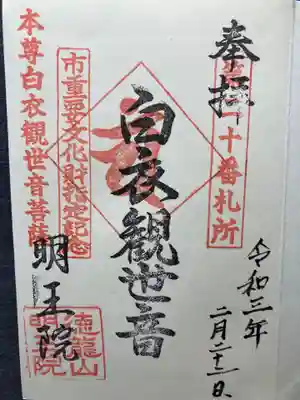 奉拝
十番札所
令和三年
二月二十二日
白衣觀世音
市重要文化財指定記念
本尊白衣觀世音菩薩
明王院
徳龍山
明王院